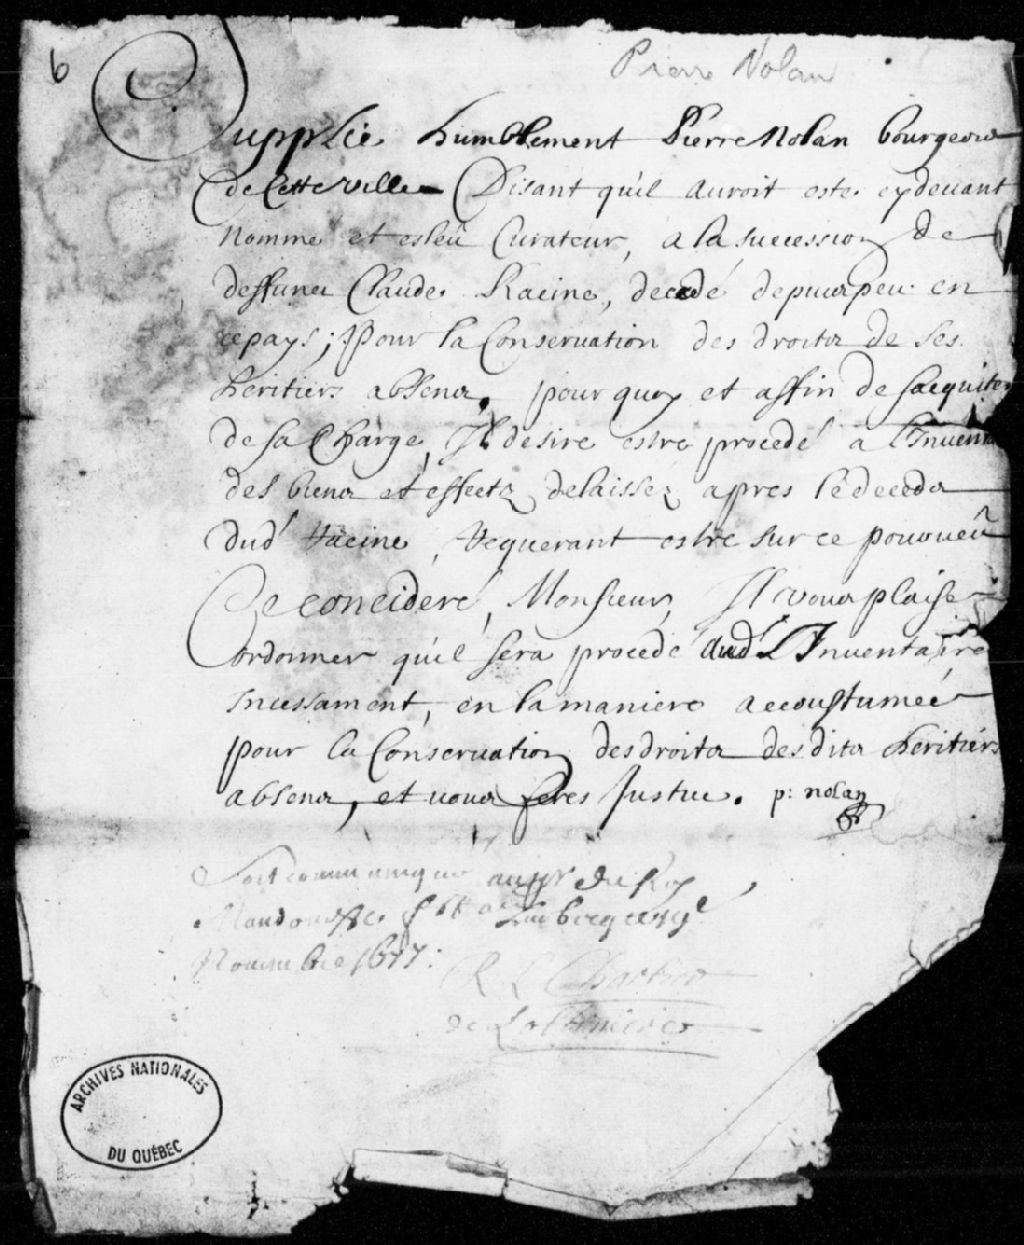 6
Pierre Nolan
Supplie humblement Pierre Nolan bourgeois
de Cette ville Disant qu'il auroit este cy devant
Nommé et esleü Curateur, a la succession de
deffunct Claude Racine, decedé depuis peu en
ce pays; Pour la Conseruation des droits de ses
heritiers absens, pour quoy et affin de sacquiter
de sa Charge, Il desire estre procedé a l'Inuent
des biens et effects delaissez apres le deceds
dud' Racine, Requerant estre sur ce pourueü
Ce Concideré, Monsieur, Il vous plaise
ordonner qu'il sera procedé aud' Inuentaire
incessament, en la maniere accoustumeé
pour la Conseruation des droits desdits heritiers
absens, et vous feres Justice. p: nolan
Soit communiqué au pr du Roy
Mandons &c fait a Quebecq ce xje
Nouembre 1677:
R L Chartier
de Lotbiniere
ARCHIVES NATIONALES
DU QUÉBEC